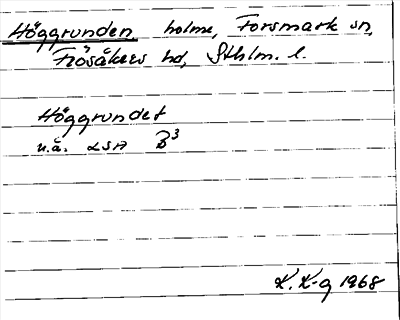 Höggrunden, holme, Forsmark sn,
Frösåkers hd, Sthlm. l.
Höggrundet
u.å. LSA B³
K. K-g 1968